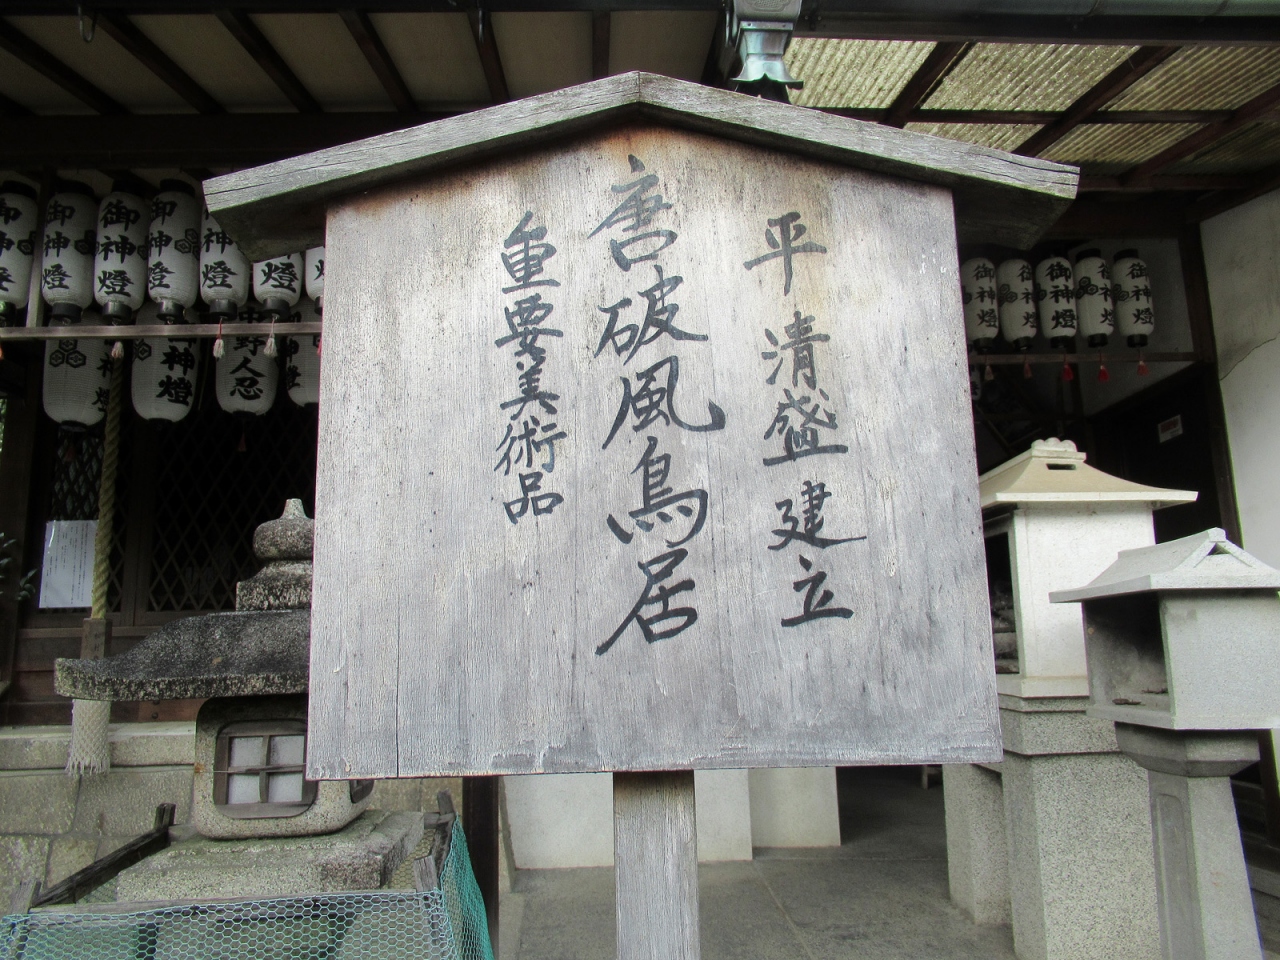 平清盛建立
唐破風鳥居
重要美術品
御神燈
御神燈
御神燈
御神燈
御神燈
御神燈
御神燈
御神燈
御神燈
御神燈
神燈
人忍